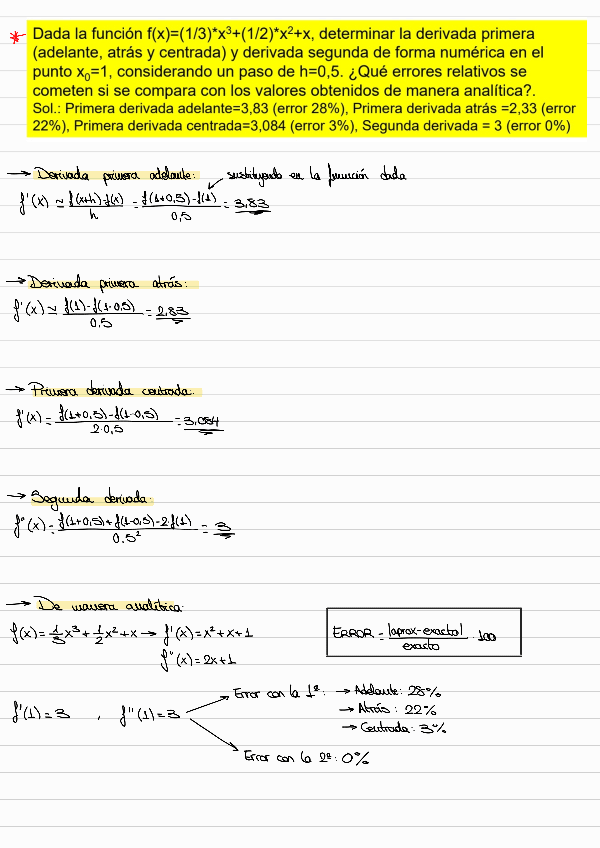 * Dada la función f(x)=(1/3)*x³+(1/2)*x²+x, determinar la derivada primera
(adelante, atrás y centrada) y derivada segunda de forma numérica en el
punto x₀=1, considerando un paso de h=0,5. ¿Qué errores relativos se
cometen si se compara con los valores obtenidos de manera analítica?.
Sol.: Primera derivada adelante=3,83 (error 28%), Primera derivada atrás =2,33 (error
22%), Primera derivada centrada=3,084 (error 3%), Segunda derivada = 3 (error 0%)
→ Derivada primera adelante: sustituyendo en la función dada
f'(x) ≃ (f(x+h)-f(x))/h = (f(1+0,5)-f(1))/0,5 = 3,83
→ Derivada primera atrás:
f'(x) ≃ (f(1)-f(1-0,5))/0,5 = 2,83
→ Primera derivada centrada:
f'(x) = (f(1+0,5)-f(1-0,5))/2·0,5 = 3,084
→ Segunda derivada:
f''(x) = (f(1+0,5)+f(1-0,5)-2·f(1))/0.5² = 3
→ De manera analítica:
f(x) = 1/3 x³ + 1/2 x² + x → f'(x) = x² + x + 1
f''(x) = 2x+1
ERROR = |aprox-exacto|/exacto · 100
f'(1) = 3 , f''(1) = 3
Error con la 1ª: → Adelante: 28%
→ Atrás: 22%
→ Centrada: 3%
Error con la 2ª: 0%